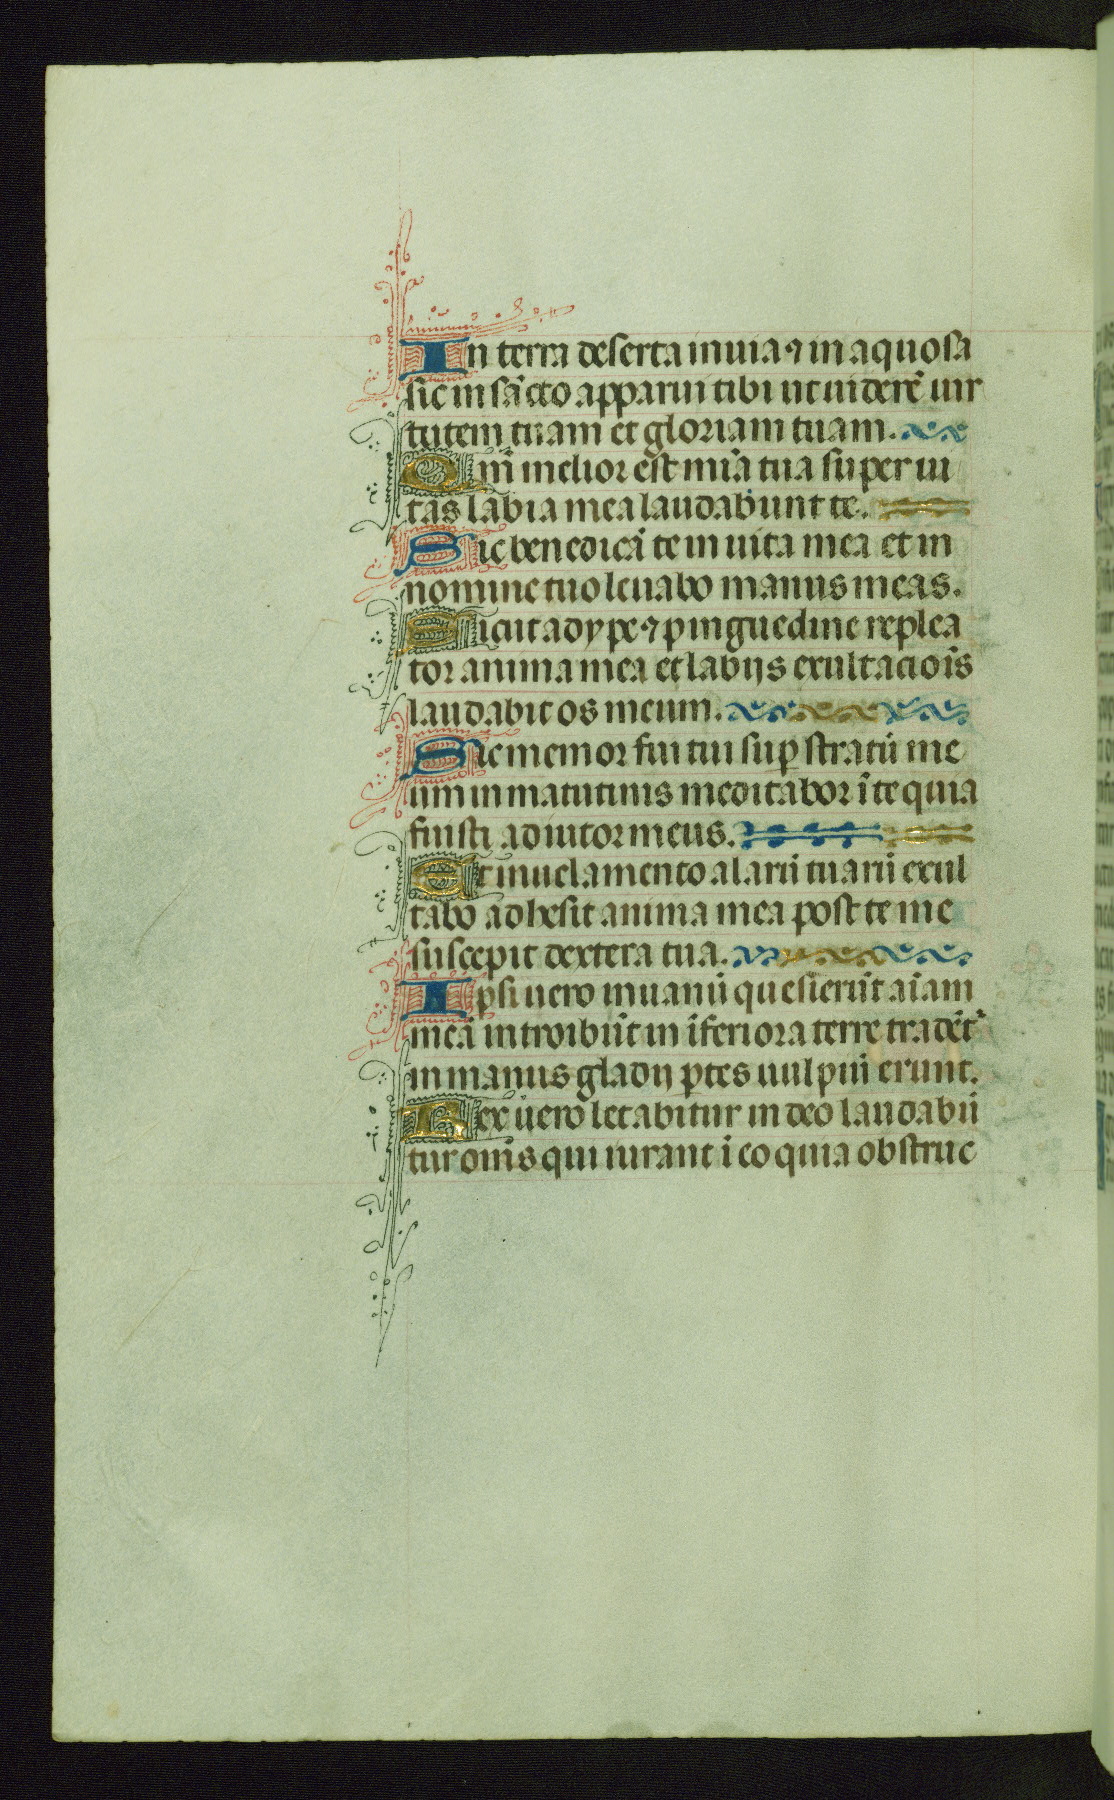 In terra deserta inuia ⁊ in aquosa
sic in sācto apparui tibi ut uiderē uir
tutem tuam et gloriam tuam.
Qm̄ melior est mīa tua super ui
tas labia mea laudabunt te.
Sic benedicā te in uita mea et in
nomine tuo leuabo manus meas.
Sicut adype ⁊ pinguedine replea
tor anima mea et labijs exultacioīs
laudabit os meum.
Sic memor fui tui sup̄ stratū me
um in matutinis meditabor ī te quia
fuisti adiutor meus.
Et in uelamento alarū tuarū exul
tabo adhesit anima mea post te me
suscepit dextera tua.
Ipsi uero in uanū quesierūt aīam
meā introibūt in īferiora terre tradēt᷑
in manus gladij p̄tes uulpiū erunt.
Rex uero letabitur in deo laudabū
tur om̄s qui iurant ī eo quia obstruc